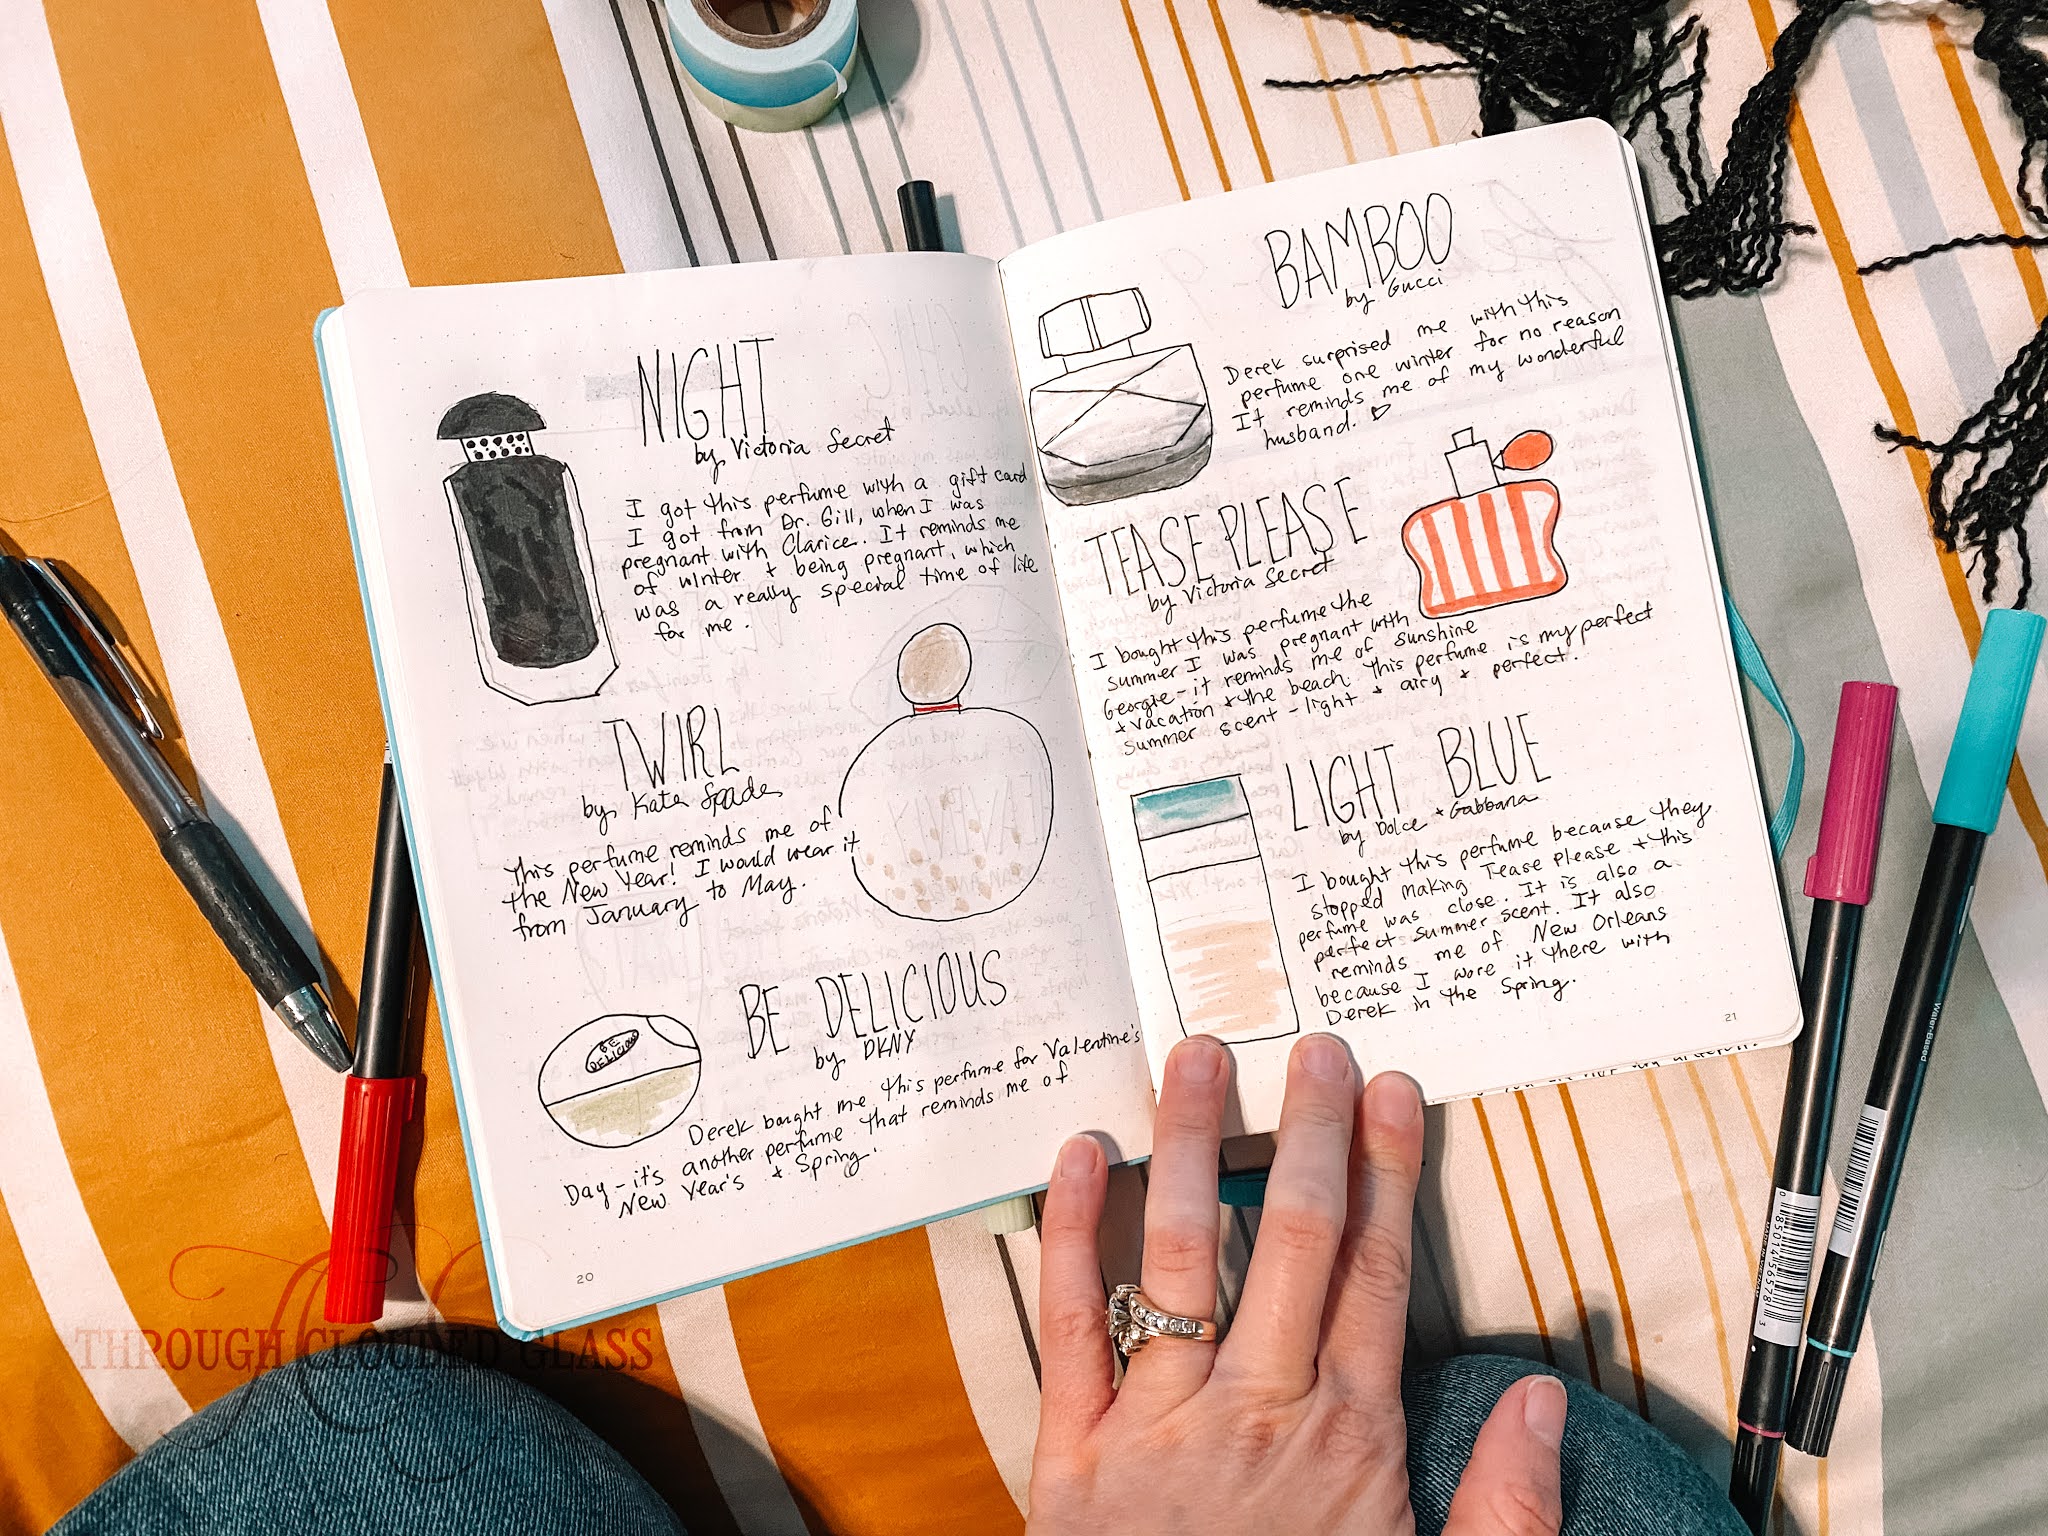 NIGHT
by Victoria Secret
I got this perfume with a gift card
I got from Dr. Gill, when I was
pregnant with Clarice. It reminds me
of winter + being pregnant, which
was a really special time of life
for me.
TWIRL
by Kate Spade
This perfume reminds me of
the New Year! I would wear it
from January to May.
BE DELICIOUS
by DKNY
BE
DELICIOUS
Derek bought me this perfume for Valentine's
Day - it's another perfume that reminds me of
New Year's + Spring.
20
BAMBOO
by Gucci
Derek surprised me with this
perfume one winter for no reason
It reminds me of my wonderful
husband. ♡
TEASE PLEASE
by Victoria Secret
I bought this perfume the
summer I was pregnant with
Georgie - it reminds me of sunshine
+ vacation + the beach. This perfume is my perfect
summer scent - light + airy + perfect.
LIGHT BLUE
by Dolce + Gabbana
I bought this perfume because they
stopped making Tease Please + this
perfume was close. It is also a
perfect summer scent. It also
reminds me of New Orleans
because I wore it there with
Derek in the Spring.
21
Water-Based
0 85014 56578 3
THROUGH CLOUDED GLASS